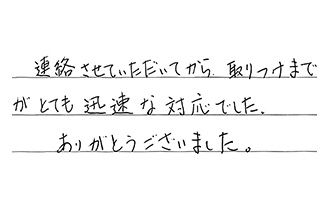 連絡させていただいてから、取りつけまで
がとても迅速な対応でした。
ありがとうございました。